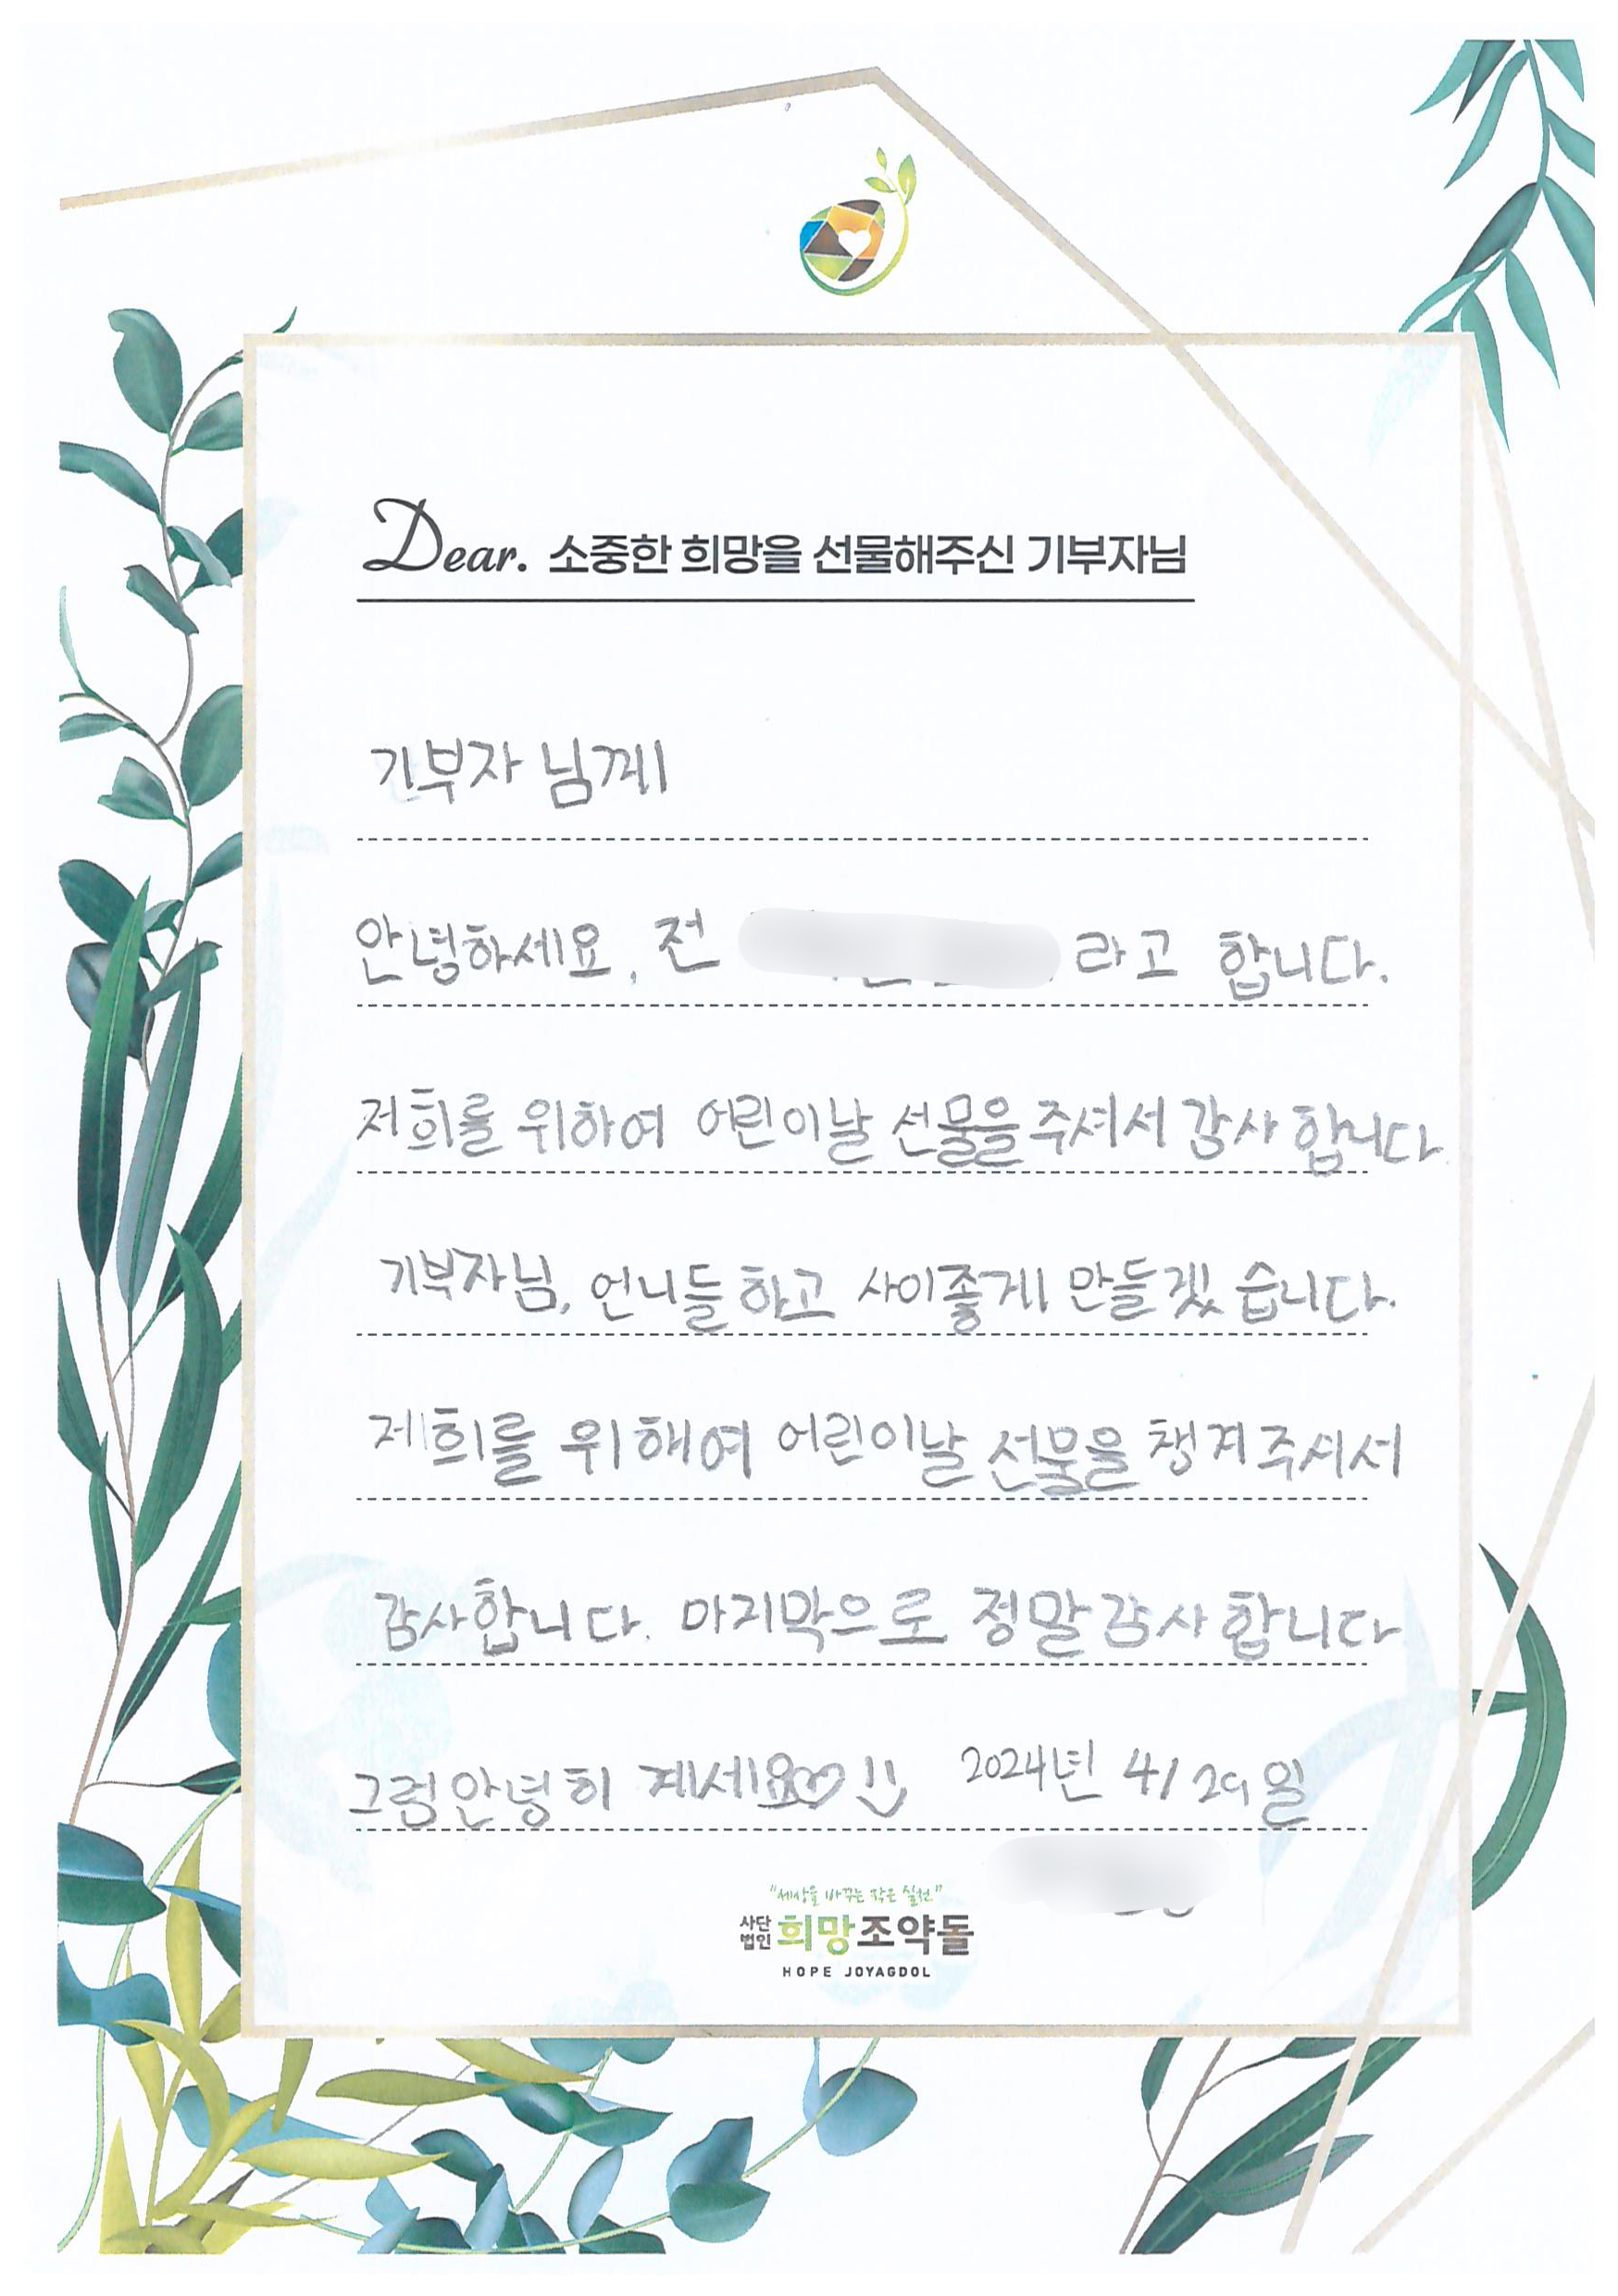 Dear. 소중한 희망을 선물해주신 기부자님
기부자 님께
안녕하세요, 전 라고 합니다.
저희를 위하여 어린이날 선물을 주셔서 감사 합니다.
기부자님, 언니들하고 사이좋게 만들겠 습니다.
제희를 위해여 어린이날 선물을 챙겨주셔서
감사합니다. 마지막으로 정말감사합니다
그럼안녕히 계세요 2024년 4/29일
"세상을 바꾸는 작은 실천"
사단법인 희망조약돌
HOPE JOYAGDOL